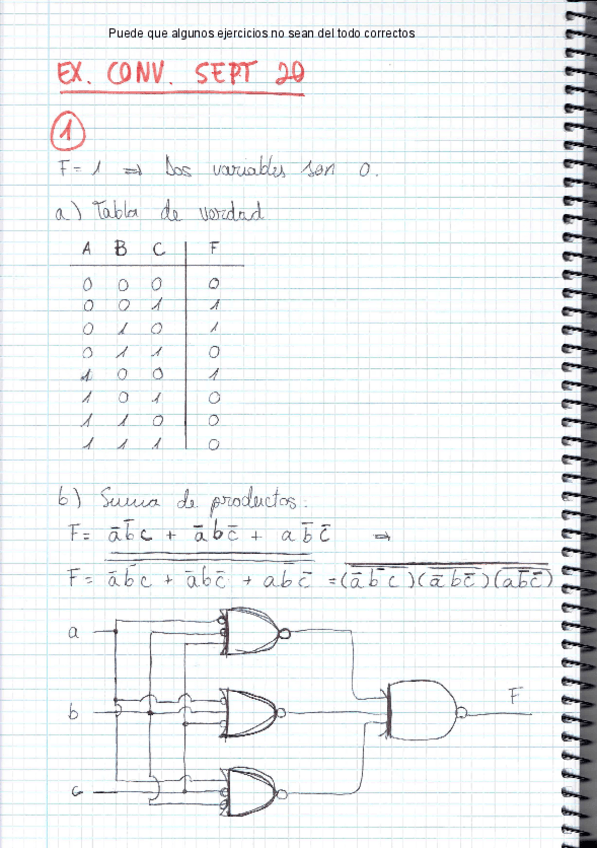 Puede que algunos ejercicios no sean del todo correctos
EX. CONV. SEPT 20
1
F = 1 ⇒ Dos variables son 0.
a) Tabla de verdad
A B C F
0 0 0 0
0 0 1 1
0 1 0 1
0 1 1 0
1 0 0 1
1 0 1 0
1 1 0 0
1 1 1 0
b) Suma de productos.
F = a̅ b̅ c + a̅ b c̅ + a b̅ c̅ ⇒
F = a̅ b̅ c + a̅ b c̅ + a b̅ c̅ = (a̅ b̅ c)(a̅ b c̅)(a b̅ c̅)
a
b
F
c